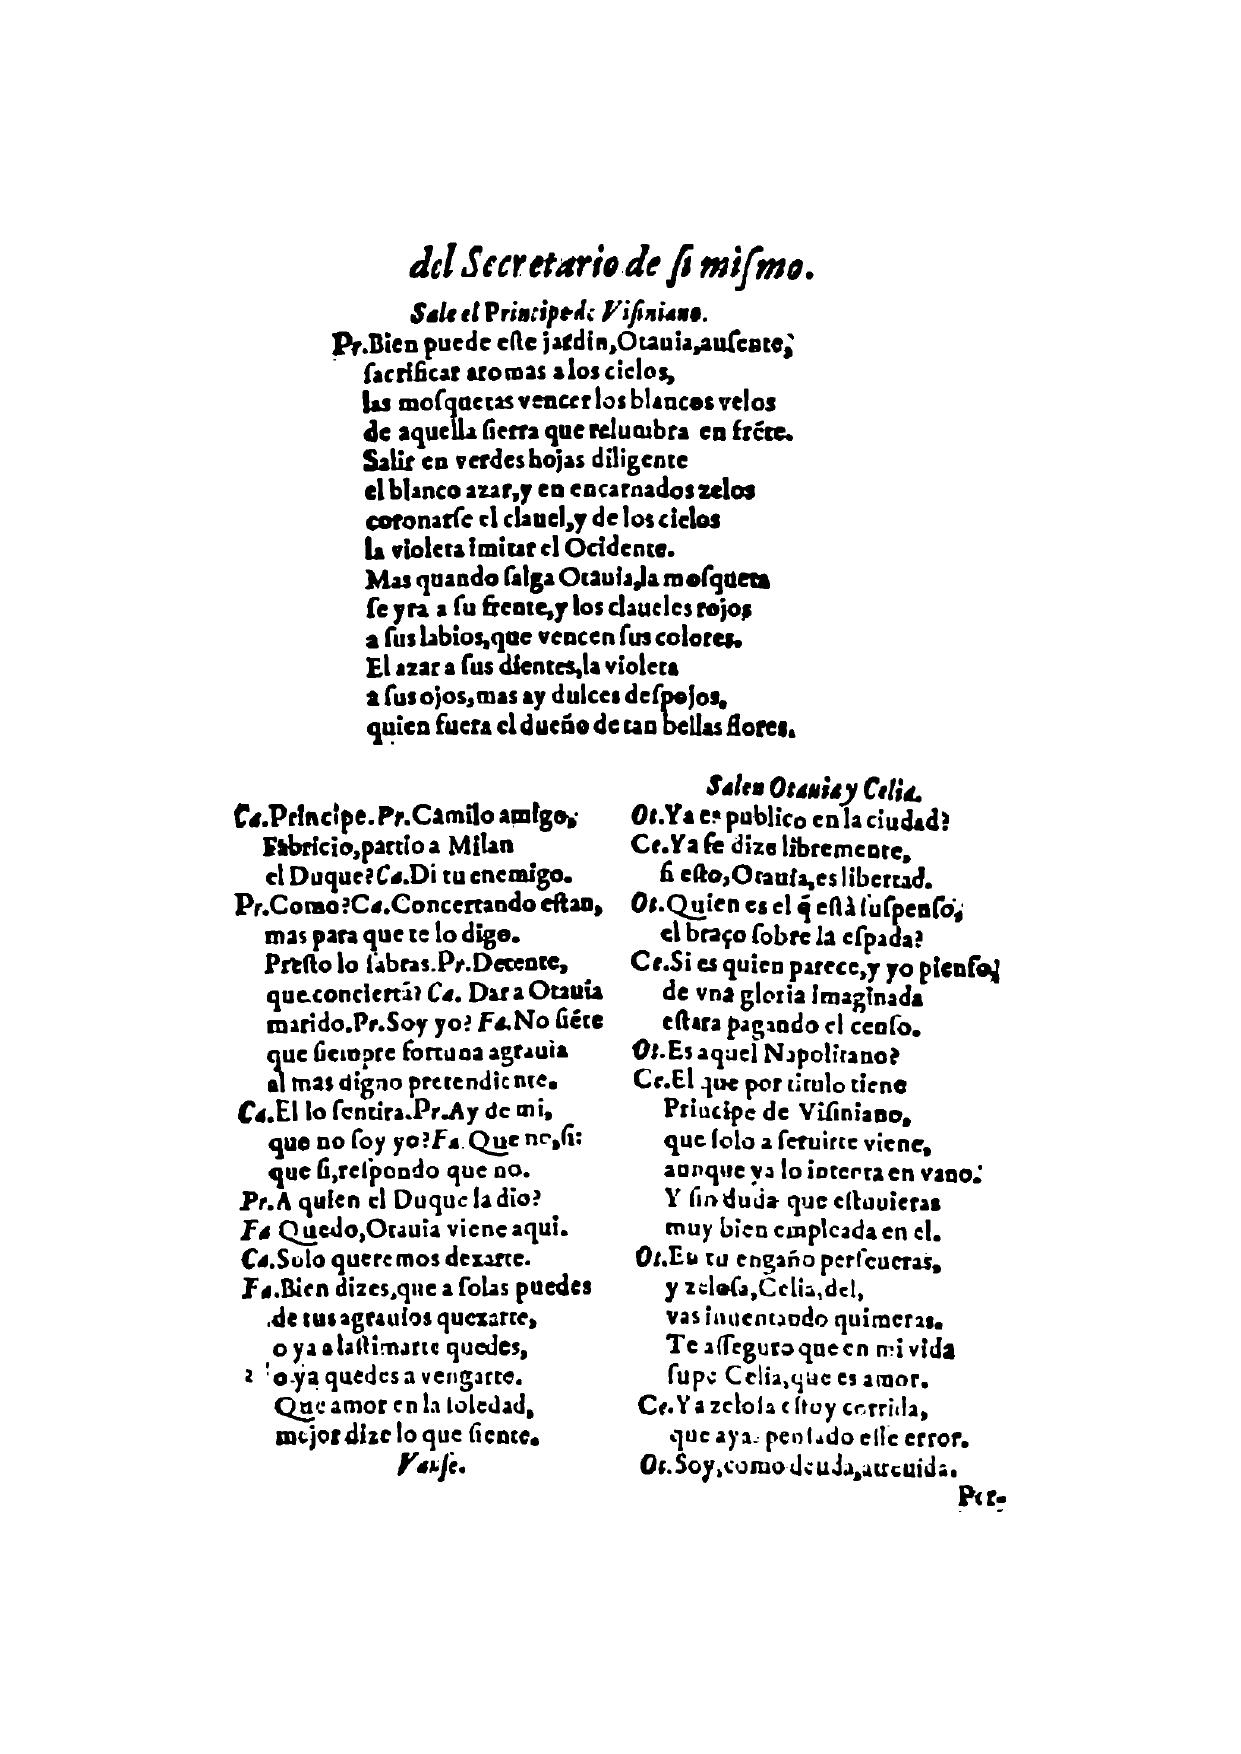 del Secretario de ſi miſmo.
Sale el Principe de Viſiniano.
Pr.Bien puede eſte jardin,Otauia,auſente,
ſacrificar aromas a los cielos,
las moſquetas vencer los blancos velos
de aquella ſierra que relumbra en fréte.
Salir en verdes hojas diligente
el blanco azar,y en encarnados zelos
coronarſe el clauel,y de los cielos
la violeta imitar el Ocidente.
Mas quando ſalga Otauia,la moſqueta
ſe yra a ſu frente,y los claueles rojos
a ſus labios,que vencen ſus colores.
El azar a ſus dientes,la violeta
a ſus ojos,mas ay dulces deſpojos,
quien fuera el dueño de tan bellas flores.
Ca.Principe.Pr.Camilo amigo,
Fabricio,partio a Milan
el Duque?Ca.Di tu enemigo.
Pr.Como?Ca.Concertando eſtan,
mas para que te lo digo.
Preſto lo ſabras.Pr.Detente,
que conciertá? Ca. Dar a Otauia
marido.Pr.Soy yo? Fa.No ſiéte
que ſiempre fortuna agrauia
al mas digno pretendiente.
Ca.El lo ſentira.Pr.Ay de mi,
que no ſoy yo?Fa.Que no,ſi:
que ſi,reſpondo que no.
Pr.A quien el Duque la dio?
Fa Quedo,Otauia viene aqui.
Ca.Solo queremos dexarte.
Fa.Bien dizes,que a ſolas puedes
de tus agrauios quexarte,
o ya a laſtimarte quedes,
o ya quedes a vengarte.
Que amor en la ſoledad,
mejor dize lo que ſiente.
Vanſe.
Salen Otauia y Celia.
Ot.Ya es publico en la ciudad?
Ce.Ya ſe dize libremente,
ſi eſto,Otauia,es libertad.
Ot.Quien es el q̃ eſtà ſuſpenſo,
el braço ſobre la eſpada?
Ce.Si es quien parece,y yo pienſo,
de vna gloria imaginada
eſtara pagando el cenſo.
Ot.Es aquel Napolitano?
Ce.El que por titulo tiene
Principe de Viſiniano,
que ſolo a ſeruirte viene,
aunque ya lo intenta en vano.
Y ſin duda que eſtuuieras
muy bien empleada en el.
Ot.En tu engaño perſeueras,
y zeloſa,Celia,del,
vas inuentando quimeras.
Te aſſeguro que en mi vida
ſupe Celia,que es amor.
Ce.Ya zeloſa eſtoy corrida,
que aya penſado eſſe error.
Ot.Soy,como deuda,atreuida.
Per-